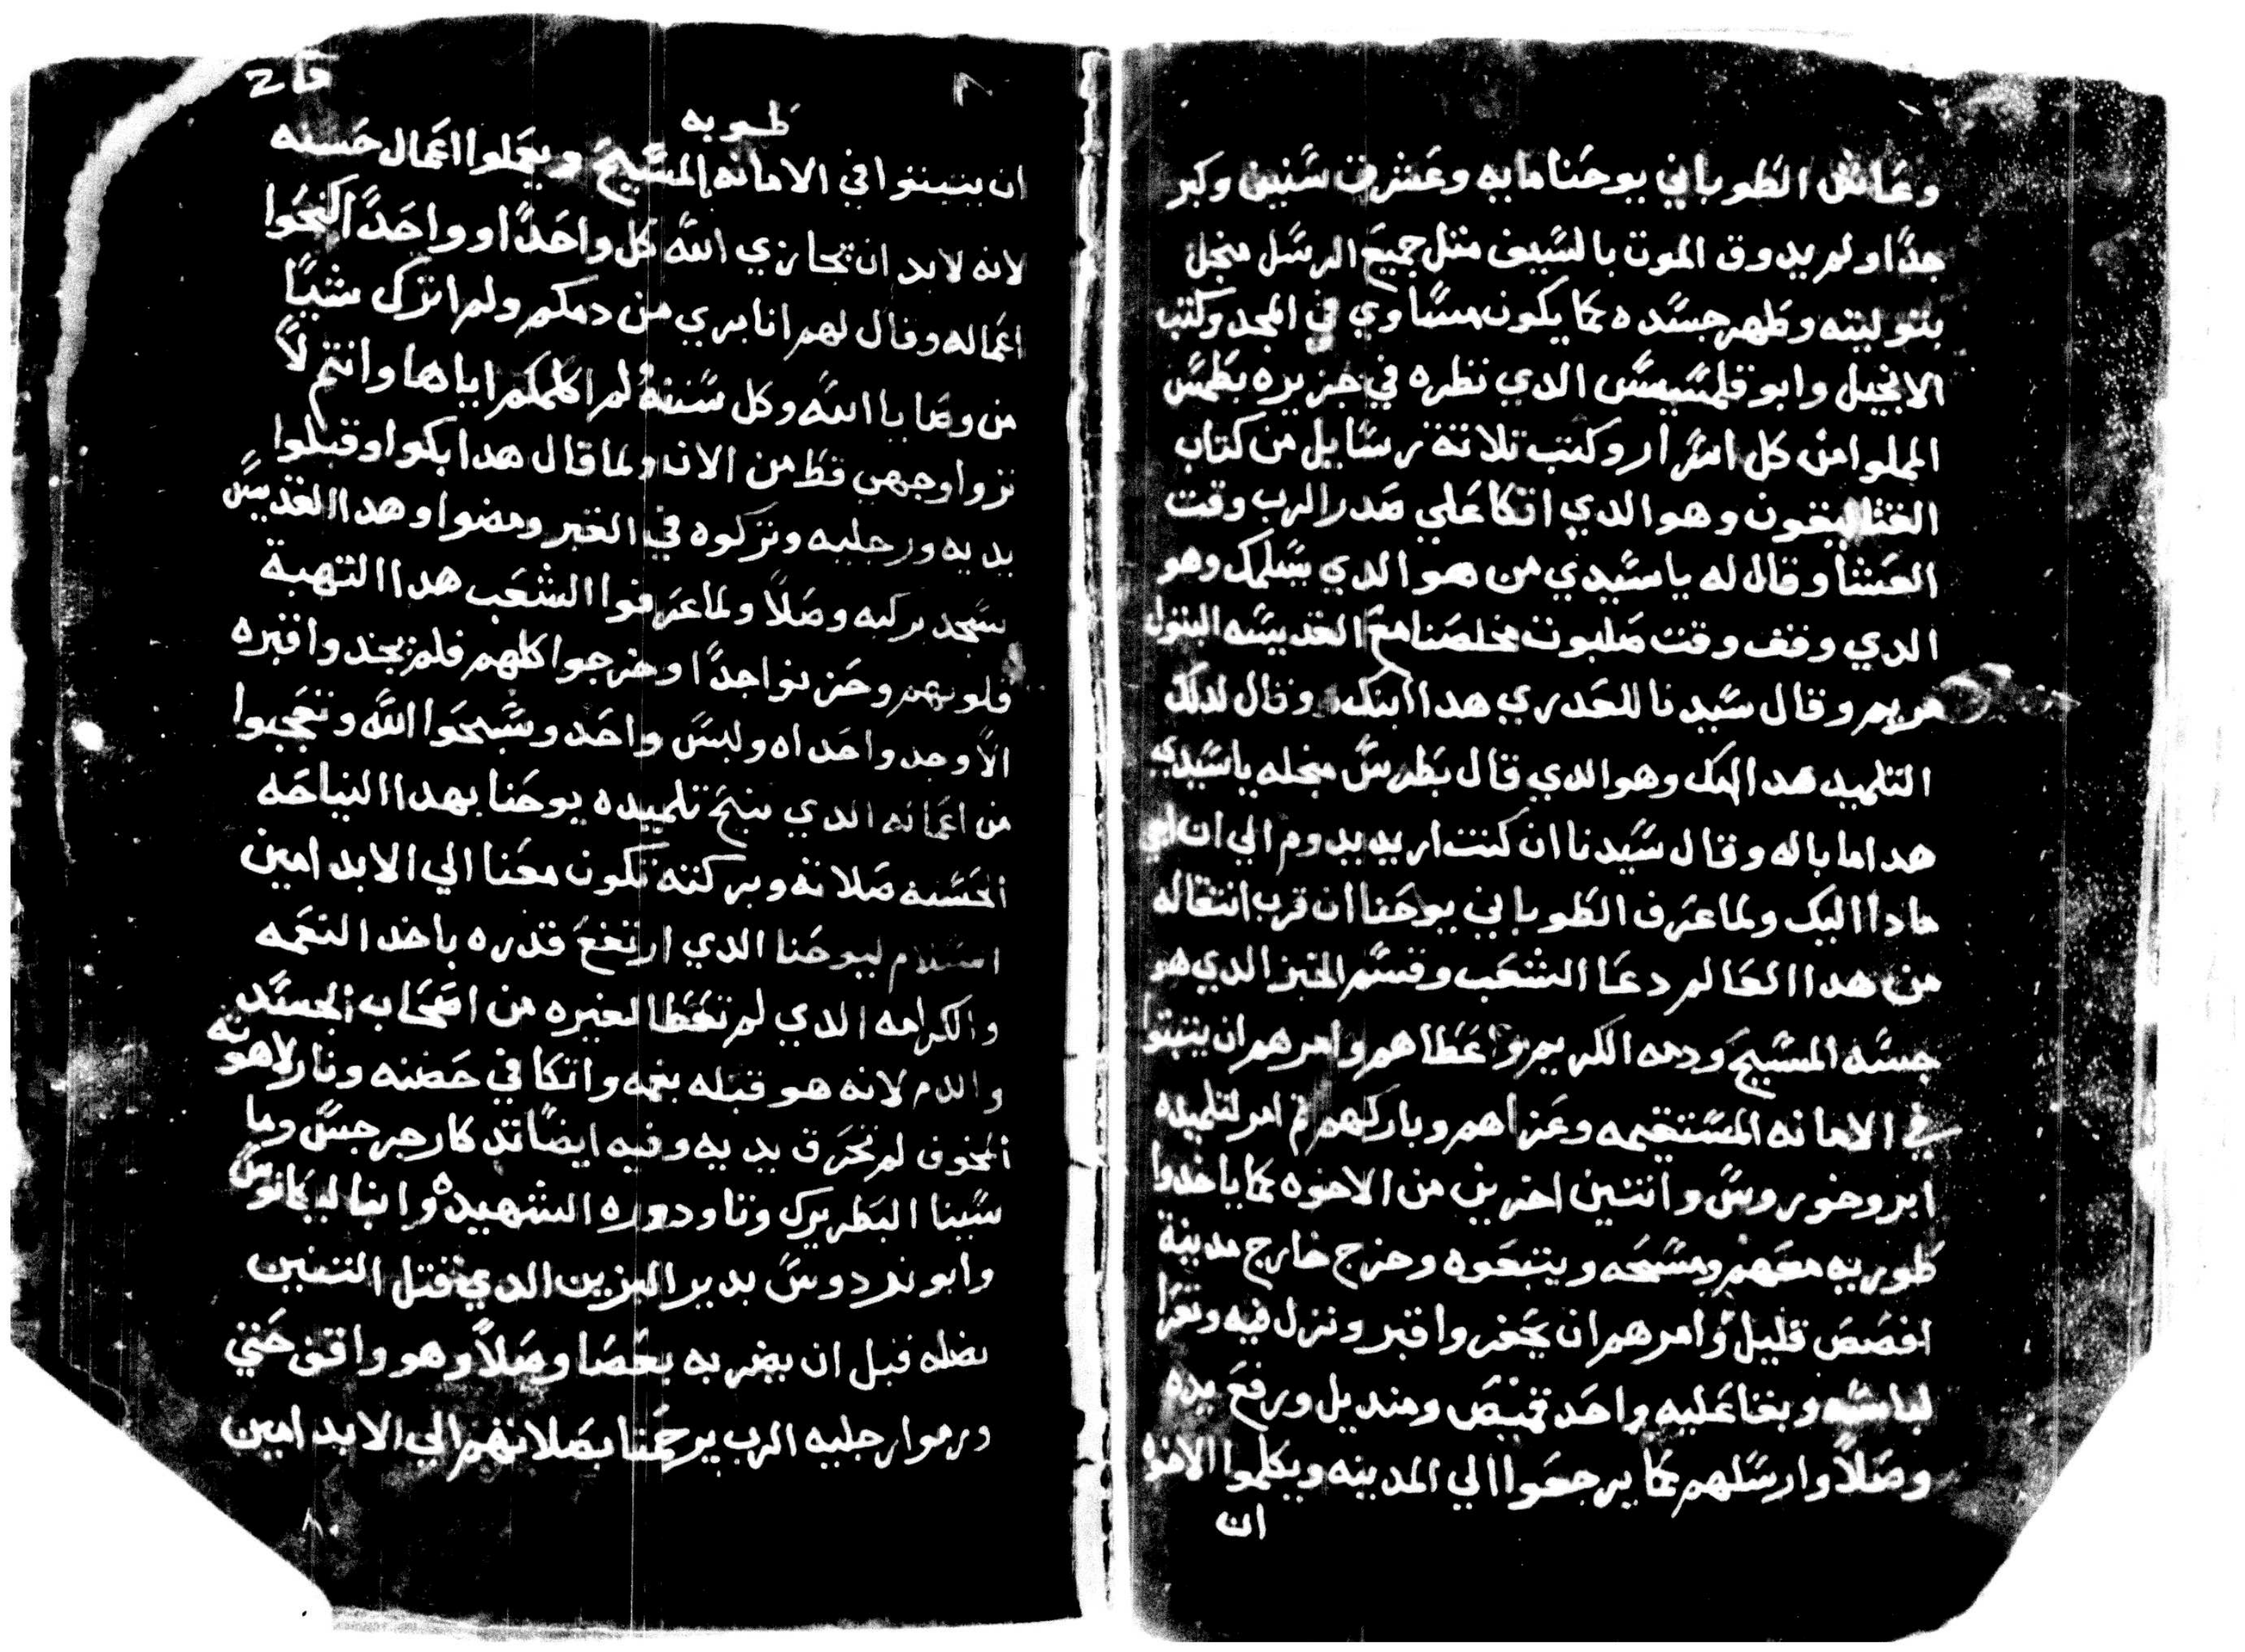 وعاش الطوباني يوحنا مايه وعشرت سنين وكبر
جدا ولم يدوق الموت بالسيف متل جميع الرسل منجل
بتوليته وطهر جسده كما يكون مساوي في المجد وكتب
الانجيل وابوقلمسيس الدي نظره في جزيره بطمس
المملوا من كل اسرار وكتب تلاتة رسايل من كتاب
القتاليقون وهو الدي اتكا علي صدر الرب وقت
العشا وقال له ياسيدي من هو الدي يسلمك وهو
الدي وقف وقت صلبوت مخلصنا مع القديسه البتول
مريم وقال سيدنا للعدري هدا ابنك وقال لدلك
التلميد هده امك وهو الدي قال بطرس منجله ياسيدي
هدا ما باله وقال سيدنا ان كنت اريد يدوم الي ان اجي
مادا اليك ولما عرف الطوباني يوحنا ان قرب انتقاله
من هدا العالم دعا الشعب وقسم الخبز الدي هو
جسد المسيح ودمه الكريم واعطاهم وامرهم ان يتبتوا
في الامانه المستقيمه وعزاهم وباركهم تم امر لتلميده
ابروخوروس واتنين اخرين من الاخوه كما ياخدوا
طوريه معهم ومسحه ويتبعوه وخرج خارج مدينة
افسس قليل وامرهم ان يحفروا قبر ونزل فيه وتعرا
لباسه وبقا عليه واحد قميص ومنديل ورفع يده
وصلا وارسلهم كما يرجعوا الي المدينه ويكلموا الاخوه
ان
طوبه
ان يتبتوا في الامانه بالمسيح ويعملوا اعمال حسنه
لانه لابد ان يجازي الله كل واحدا وواحدا كنحوا
اعماله وقال لهم انا بري من دمكم ولم اترك شيا
من وصايا الله وكل سننه لم اكلمكم اياها وانتم لا
تروا وجهي قط من الان ولما قال هدا بكوا وقبلوا
يديه ورجليه وتركوه في القبر ومضوا وهدا القديس
سجد بركبه وصلا ولما عرفوا الشعب هدا التهبة
قلوبهم وحزنوا جدا وخرجوا كلهم فلم يجدوا قبره
الا وجدوا حداه وليس واحد وسبحوا الله وتعجبوا
من اعماله الدي نيح تلميده يوحنا بهدا النياحه
الحسنه صلاته وبركته تكون معنا الي الابد امين
السلام ليوحنا الدي ارتفع قدره باخد النعمه
والكرامه الدي لم تعطا لغيره من اصحاب الجسد
والدم لانه هو قبله بفمه واتكا في حضنه ونار لاهوته
المخوف لم تحرق يديه وفيه ايضا تدكار جرجس وما
سينا البطريرك وتاودوره الشهيده وانبا ليكانوس
وابوندروس بدير العزبن الدي قتل التنين
بضله قبل ان يضربه بعصا وصلا وهو واقف حتي
ورموا رجليه الرب يرحمنا بصلاتهم الي الابد امين